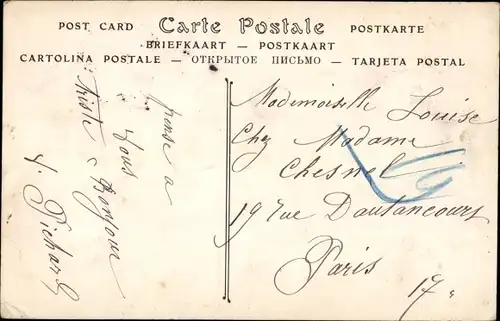 POST CARD Carte Postale POSTKARTE
BRIEFKAART — POSTKAART
CARTOLINA POSTALE — ОТКРЫТОЕ ПИСЬМО — TARJETA POSTAL
pense a
vous
triste Bonjour
Y. Pichard
Mademoiselle Louise
Chez Madame
Chesnel
19 rue Dautancourt
Paris
17